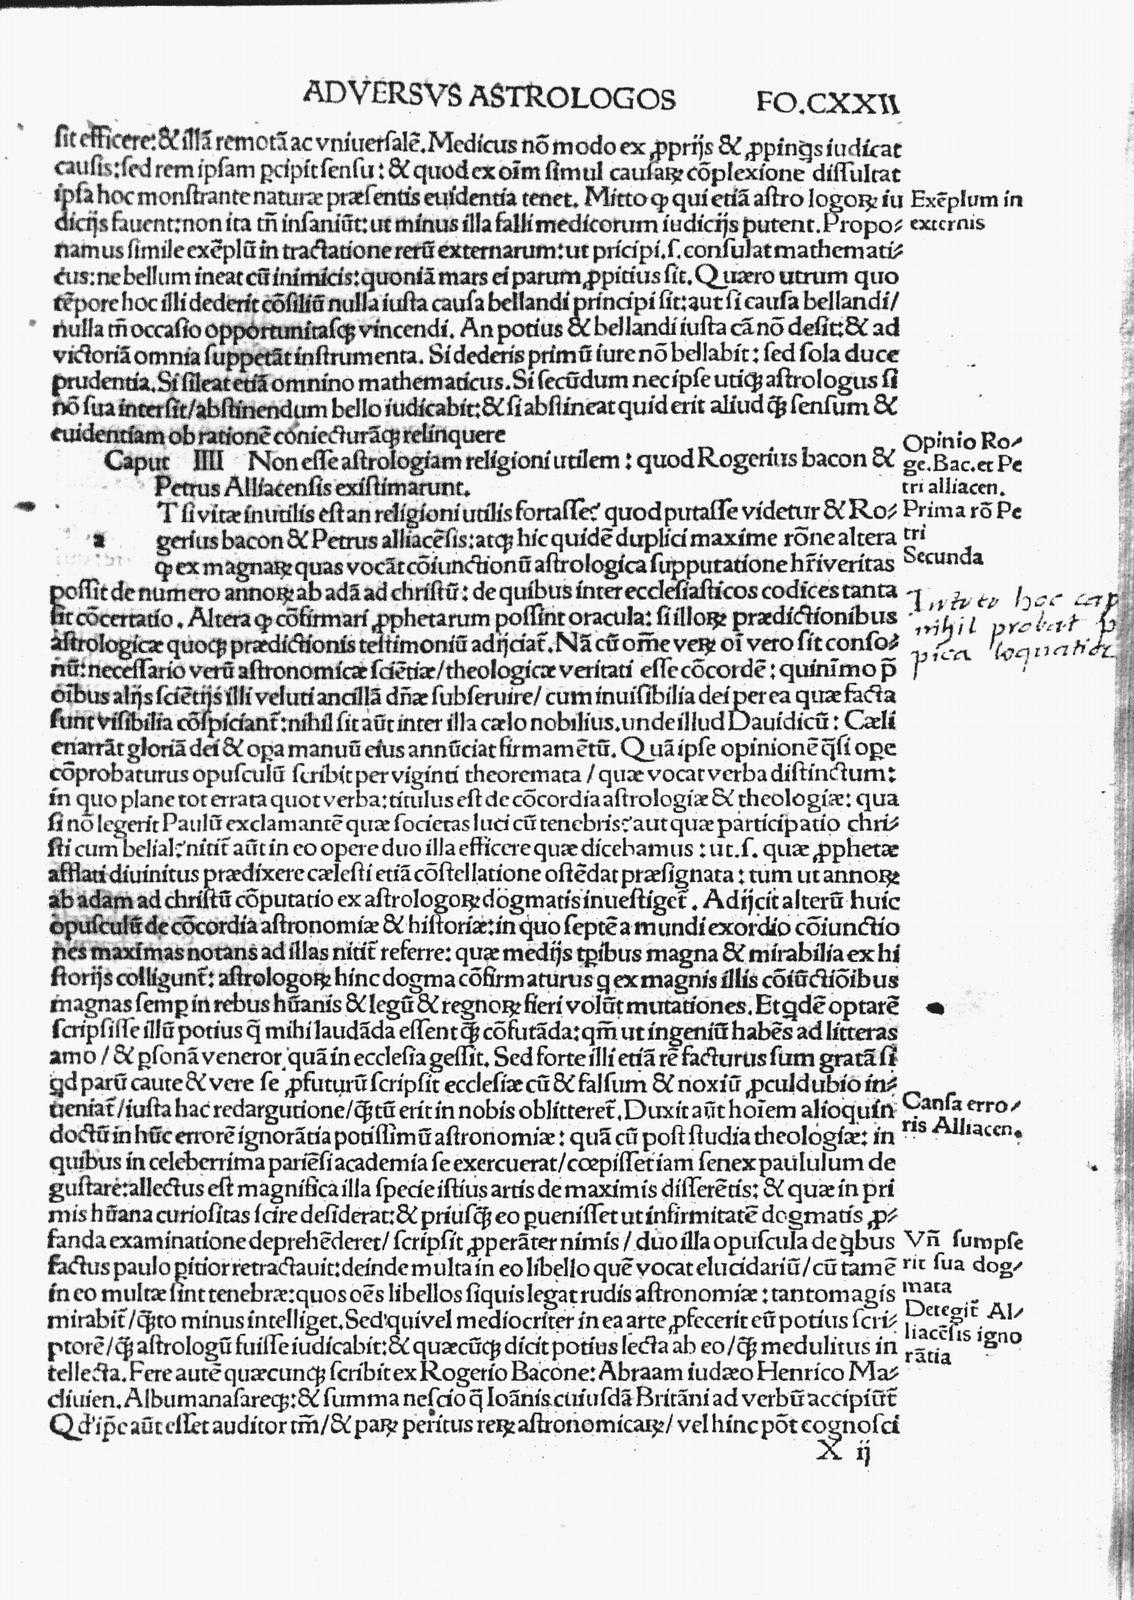 ADVERSVS ASTROLOGOS FO.CXXII
sit efficere:& illã remotã ac vniuersalẽ. Medicus nõ modo ex ꝓprijs & ꝓpinqs iudicat
causis:sed rem ipsam ꝑcipit sensu: & quod ex oĩm simul causaꝝ cõplexione dissultat
ipsa hoc monstrante naturæ præsentis euidentia tenet. Mitto ꝙ qui etiã astro logoꝝ iu
dicijs fauent:non ita tñ insaniũt:ut minus illa falli medicorum iudicijs putent. Propo⸗
namus simile exẽplũ in tractatione rerũ externarum:ut prĩcipi.s.consulat mathemati⸗
cus:ne bellum ineat cũ inimicis:quoniã mars ei parum ꝓpitius sit. Quæro utrum quo
tẽpore hoc illi dederit cõsiliũ nulla iusta causa bellandi principi sit:aut si causa bellandi/
nulla tñ occasio opportunitasqꝫ vincendi. An potius & bellandi iusta cã nõ desit:& ad
victoriã omnia suppetãt instrumenta. Si dederis primũ iure nõ bellabit: sed sola duce
prudentia. Si sileat etiã omnino mathematicus. Si secũdum nec ipse utiqꝫ astrologus si
nõ sua intersit/abstinendum bello iudicabit:& si abstineat quid erit aliud qꝫ̃ sensum &
euidentiam ob rationẽ coniecturãqꝫ relinquere
Caput IIII Non esse astrologiam religioni utilem: quod Rogerius bacon &
Petrus Alliacensis existimarunt.
T si vitæ inutilis est an religioni utilis fortasse? quod putasse videtur & Ro⸗
gerius bacon & Petrus alliacẽsis:atqꝫ hic quidẽ duplici maxime rõne altera
ꝙ ex magnaꝝ quas vocãt cõiunctionũ astrologica supputatione hr̃i veritas
possit de numero annoꝝ ab adã ad christũ: de quibus inter ecclesiasticos codices tanta
sit cõcertatio. Altera ꝙ cõfirmari ꝓphetarum possint oracula: si illoꝝ prædictionibus
astrologicæ quoqꝫ prædictionis testimoniũ adijciat̃. Nã cũ om̃e veꝝ oĩ vero sit conso⸗
nũ:necessario verũ astronomicæ sciẽtiæ/theologicæ veritati esse cõcordẽ: quinimo p̃
oĩbus alijs sciẽtijs illi veluti ancillã dñæ subseruire/cum inuisibilia dei per ea quæ facta
sunt visibilia cõspiciant̃:nihil sit aũt inter illa cælo nobilius.unde illud Dauidicũ: Cæli
enarrãt gloriã dei & oꝑa manuũ eius annũciat firmamẽtũ. Quã ipse opinionẽ q̃si oꝑe
cõprobaturus opusculũ scribit per viginti theoremata/quæ vocat verba distinctum:
in quo plane tot errata quot verba:titulus est de cõcordia astrologiæ & theologiæ: qua
si nõ legerit Paulũ exclamantẽ quæ societas luci cũ tenebris?aut quæ participatio chri⸗
sti cum belial?nitit̃ aũt in eo opere duo illa efficere quæ dicebamus: ut.s. quæ ꝓphetæ
afflati diuinitus prædixere cælesti etiã cõstellatione ostẽdat præsignata: tum ut annoꝝ
ab adam ad christũ cõputatio ex astrologoꝝ dogmatis inuestiget̃. Adijcit alterũ huic
opusculũ de cõcordia astronomiæ & historiæ:in quo septẽ a mundi exordio cõiunctio
nes maximas notans ad illas nitit̃ referre: quæ medijs tꝑibus magna & mirabilia ex hi
storijs colligunt̃: astrologoꝝ hinc dogma cõfirmaturus q ex magnis illis cõiũctiõibus
magnas semꝑ in rebus hũanis & legũ & regnoꝝ fieri volũt mutationes. Et qdẽ optarẽ
scripsisse illũ potius q̃ mihi laudãda essent qꝫ̃ cõfutãda:qm̃ ut ingeniũ habẽs ad litteras
amo/& ꝑsonã veneror quã in ecclesia gessit. Sed forte illi etiã rẽ facturus sum gratã si
qd parũ caute & vere se ꝓfuturũ scripsit ecclesiæ cũ & falsum & noxiũ ꝓculdubio in⸗
ueniat̃/iusta hac redargutione/qꝫ̃tũ erit in nobis oblitteret̃. Duxit aũt hoĩem alioquin
doctũ in hũc errorẽ ignorãtia potissimũ astronomiæ: quã cũ post studia theologiæ: in
quibus in celeberrima pariẽsi academia se exercuerat/cœpisset iam senex paululum de
gustare:allectus est magnifica illa specie istius artis de maximis differẽtis: & quæ in pri
mis hũana curiositas scire desiderat:& priusqꝫ̃ eo ꝑuenisset ut infirmitatẽ dogmatis ꝓ⸗
fanda examinatione deprehẽderet/scripsit ꝓperãter nimis/duo illa opuscula de qbus
factus paulo ꝑitior retractauit:deinde multa in eo libello quẽ vocat elucidariũ/cũ tamẽ
in eo multæ sint tenebræ:quos oẽs libellos siquis legat rudis astronomiæ: tantomagis
mirabit̃/qꝫ̃to minus intelliget. Sed quiuel mediocriter in ea arte ꝓfecerit eũ potius scri⸗
ptorẽ/qꝫ̃ astrologũ fuisse iudicabit:& quæcũqꝫ dicit potius lecta ab eo/qꝫ̃ medulitus in
tellecta. Fere autẽ quæcunqꝫ scribit ex Rogerio Bacone: Abraam iudæo Henrico Ma⸗
cliuien. Albumanasareqꝫ:& summa nescio q̃ Ioãnis cuiusdã Britãni ad verbũ accipiũt̃
Q d'ip̃e aũt esset auditor tm̃/& paꝝ peritus reꝝ astronomicaꝝ/vel hinc põt cognosci
X ij
Exẽplum in
externis
Opinio Ro⸗
ge.Bac.et Pe
tri alliacen.
Prima rõ Pe
tri
Secunda
hoc cap
nihil probat
Causa erro⸗
ris Alliacen.
Vñ sumpse
rit sua dog⸗
mata
Detegit̃ Al⸗
liacẽsis igno
rãtia